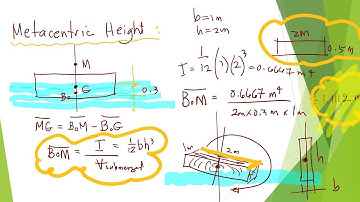 Metacentric Height :
M
G
B₀
0.3
M̅G̅ = B̅₀M̅ − B̅₀G̅
B̅₀M̅ = I / ∀submerged = 1/12 bh³
b = 1m
h = 2m
I = 1/12 (1)(2)³ = 0.6667 m⁴
B̅₀M̅ = 0.6667 m⁴ / 2m x 0.3m x 1m = 1.112 m
2m
0.5m
1m
2m
h
b